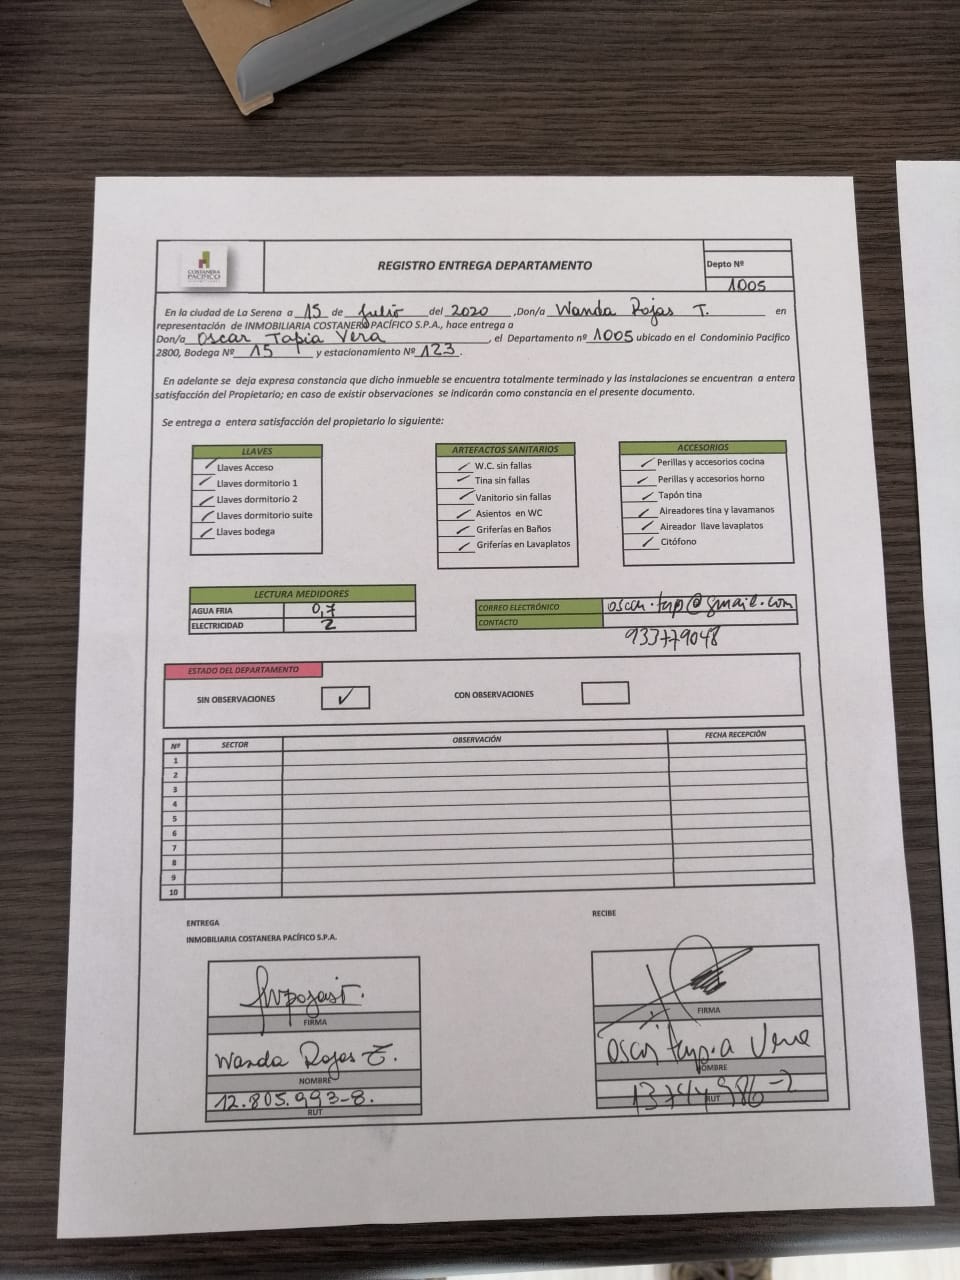 COSTANERA
PACÍFICO
REGISTRO ENTREGA DEPARTAMENTO
Depto Nº
1005
En la ciudad de La Serena a 15 de Julio del 2020 ,Don/a Wanda Rojas T. en
representación de INMOBILIARIA COSTANERA PACÍFICO S.P.A., hace entrega a
Don/a Oscar Tapia Vera , el Departamento nº 1005 ubicado en el Condominio Pacifico
2800, Bodega Nº 15 y estacionamiento Nº 123.
En adelante se deja expresa constancia que dicho inmueble se encuentra totalmente terminado y las instalaciones se encuentran a entera
satisfacción del Propietario; en caso de existir observaciones se indicarán como constancia en el presente documento.
Se entrega a entera satisfacción del propietario lo siguiente:
LLAVES
Llaves Acceso
Llaves dormitorio 1
Llaves dormitorio 2
Llaves dormitorio suite
Llaves bodega
ARTEFACTOS SANITARIOS
W.C. sin fallas
Tina sin fallas
Vanitorio sin fallas
Asientos en WC
Griferías en Baños
Griferías en Lavaplatos
ACCESORIOS
Perillas y accesorios cocina
Perillas y accesorios horno
Tapón tina
Aireadores tina y lavamanos
Aireador llave lavaplatos
Citófono
LECTURA MEDIDORES
AGUA FRIA 0,7
ELECTRICIDAD 2
CORREO ELECTRÓNICO @gmail.com
CONTACTO
933779048
ESTADO DEL DEPARTAMENTO
SIN OBSERVACIONES ✓ CON OBSERVACIONES
Nº SECTOR OBSERVACIÓN FECHA RECEPCIÓN
1
2
3
4
5
6
7
8
9
10
ENTREGA
INMOBILIARIA COSTANERA PACÍFICO S.P.A.
FIRMA
Wanda Rojas T.
NOMBRE
12.805.993-8.
RUT
RECIBE
FIRMA
Oscar Tapia Vera
NOMBRE
13744986-2
RUT